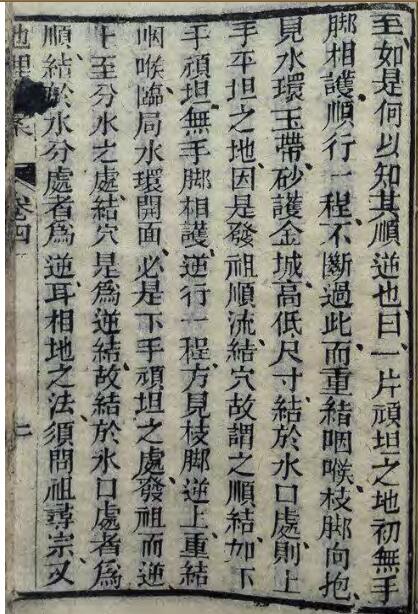 至如是何以知其順逆也曰一片頑坦之地初無手
脚相護順行一程不斷過此而重結咽喉枝脚向抱
見水環玉帶砂護金城高低尺寸結於水口處則上
手平坦之地因是發祖順流結穴故謂之順結如下
手頑坦無手脚相護逆行一程方見枝脚逆上重結
咽喉臨局水環開面必是下手頑坦之處發祖而逆
上至分水之處結穴是爲逆結故結於水口處者爲
順結於水分處者爲逆耳相地之法須問祖尋宗又
地理 卷四